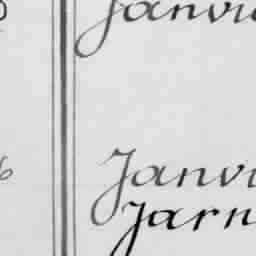 Janvi
Janvi
Jarn